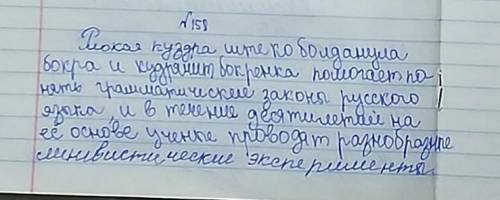 №158
Глокая куздра штеко болданула
бокра и кудрячит бокренка помогает по-
нять грамматические законы русского
языка, и в течение десятилетий на
её основе ученые проводят разнобразные
лингвистические эксперименты.